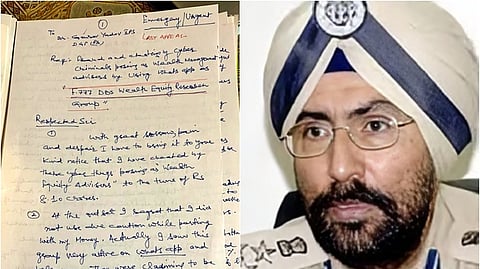 ①
Emergency/Urgent
To Dr. Gaurav Yadav IPS
DGP (PB)
LAST APPEAL
Cyber
Criminals posing as Wealth Management
advisors by Using Whats app as
"F.777 DBS Wealth Equity Research
Group"
Respected Sir
① With great
and despair I have to bring it to your
Kind notice that I have cheated by
these cyber thugs posing as Wealth
Equity Advisors" to the tune of Rs
8.10 Crores.
② At the outset I regret that I did
not use due caution while parting
with my Money. Actually I saw this
group very active on whats app and
They were claiming to be